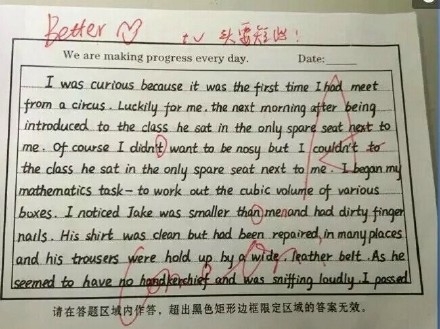 Better
t v 头要短些!
We are making progress every day. Date:
I was curious because it was the first time I had meet
from a circus. Luckily for me. the next morning after being
introduced to the class he sat in the only spare seat next to
me. Of course I didn't want to be nosy but I couldn't to
the class he sat in the only spare seat next to me. I began my
mathematics task - to work out the cubic volume of various
boxes. I noticed Jake was smaller than me and had dirty finger
nails. His shirt was clean but had been repaired, in many places
and his trousers were hold up by a wide, leather belt. As he
seemed to have no handkerchief and was sniffing loudly. I passed
请在答题区域内作答，超出黑色矩形边框限定区域的答案无效。